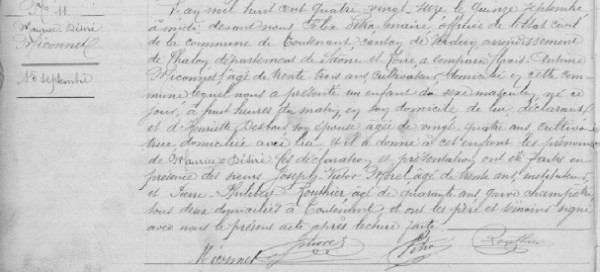 No 11
Maurice Désiré
Miconnet
15 Septembre
L'an mil huit cent quatre vingt seize le quinze septembre
à midi, devant nous Félix maire officier de l'état civil
de la commune de Toutenant canton de Verdun arrondissement
de Chalon département de Saône et Loire, a comparu
Miconnet âgé de trente trois ans, cultivateur, domicilié en cette com-
mune lequel nous a présenté un enfant du sexe masculin, né ce
jour, à huit heures du matin, en son domicile de lui, déclarant
et d'Henriette Desbois son épouse âgée de vingt quatre ans, cultiva-
trice domiciliée avec lui, et il a donné à cet enfant les prénoms
de Maurice Désiré les déclaration et présentation ont été faites en
présence des sieurs Joseph Victor âgé de trente ans, instituteur,
et Pierre Routhier âgé de quarante ans garde champêtre,
tous deux domiciliés à Toutenant, et ont les père et témoins signé
avec nous le présent acte après lecture faite.
Miconnet Routhier